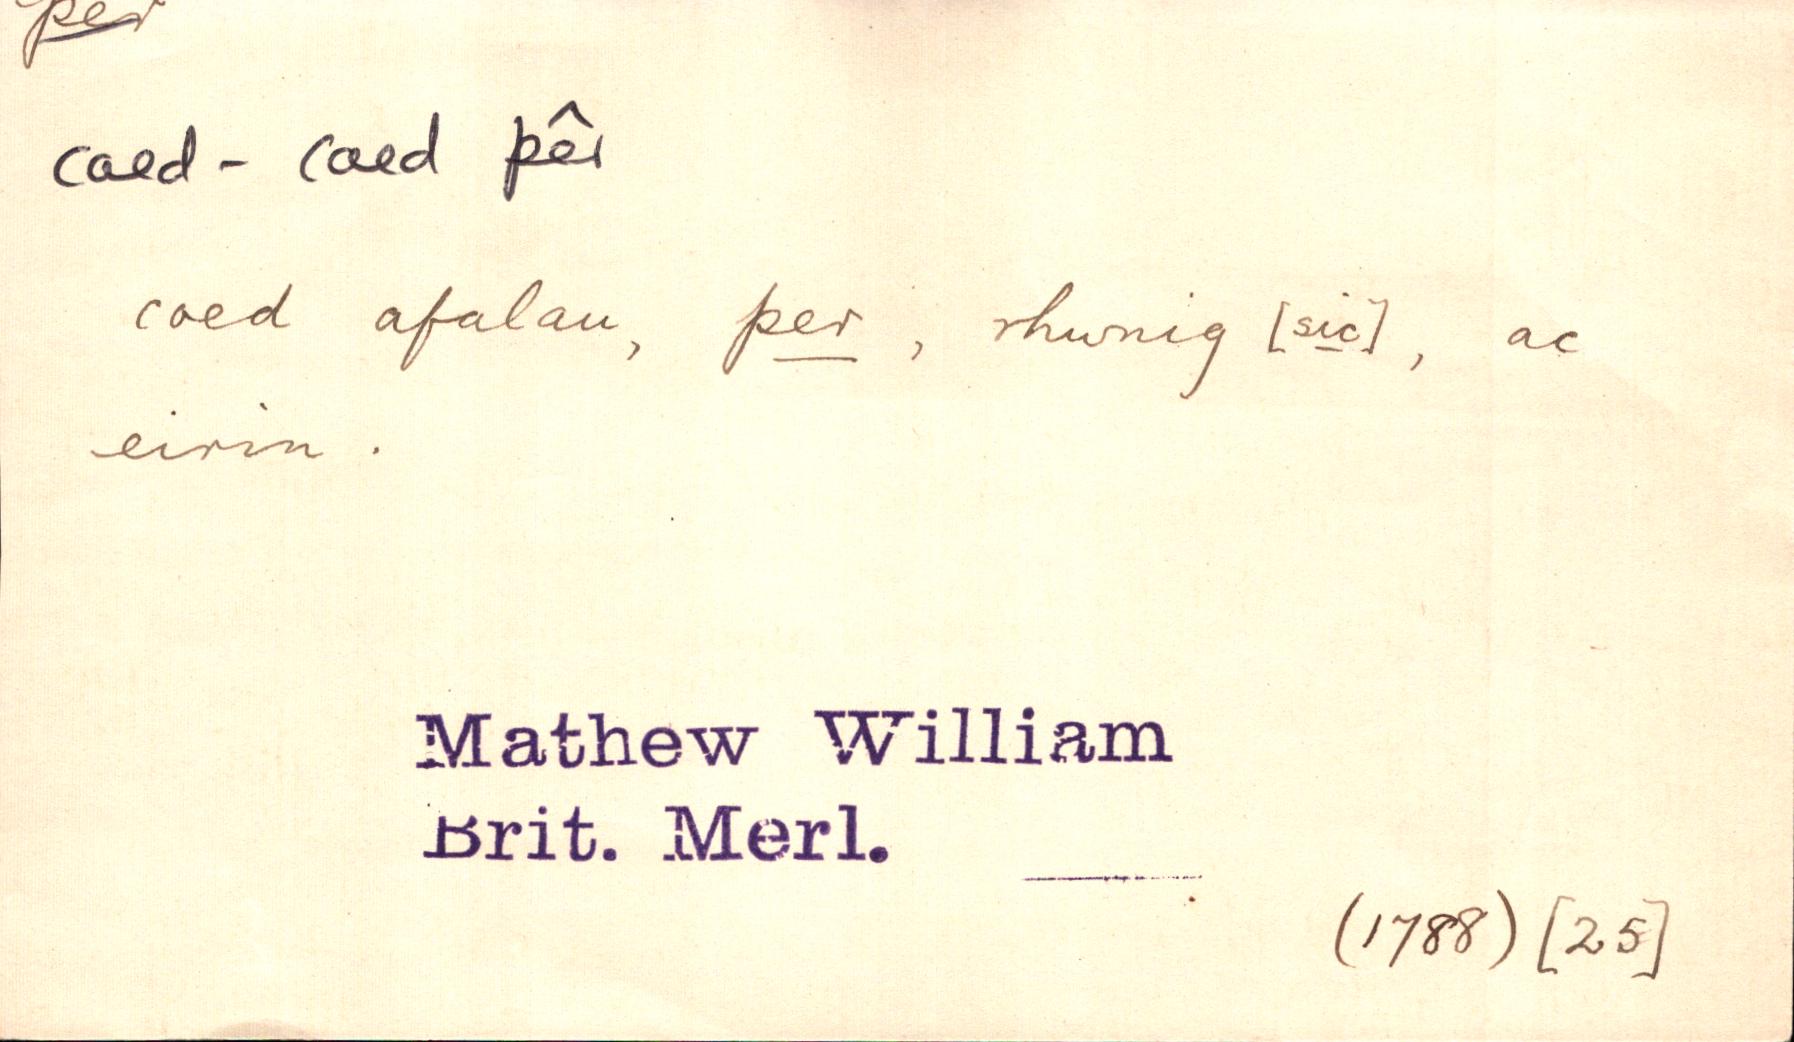 per
coed - coed pêr
coed afalau, per, rhwnig [sic], ac
eirin.
Mathew William
Brit. Merl.
(1788) [25]